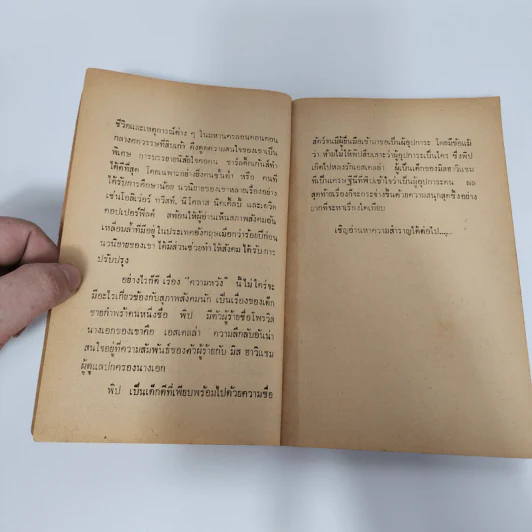 ชีวิตและเหตุการณ์ต่าง ๆ ในมหานครลอนดอนตอน
กลางศตวรรษที่สิบเก้า ดึงดูดความสนใจของเขาเป็น
พิเศษ การบรรยายนิสัยใจคอคน ชาร์ลส์ดิกเก้นส์ทำ
ได้ดีที่สุด โดยเฉพาะอย่างยิ่งคนชั้นต่ำ หรือ คนที่
ได้รับการศึกษาน้อย นวนิยายของเขาหลายเรื่องอย่าง
เช่นโอลิเวอร์ ทวิสท์, นิโคลาส นิคเคิลบี้ และเดวิด
คอปเปอร์ฟิลด์ สะท้อนให้ผู้อ่านเห็นสภาพสังคมอัน
เหลื่อมล้ำที่มีอยู่ในประเทศอังกฤษเมื่อกว่าร้อยปีก่อน
นวนิยายของเขา ได้มีส่วนช่วยทำให้สังคม ได้รับ การ
ปรับปรุง
อย่างไรก็ดี เรื่อง "ความหวัง" นี้ ไม่ใคร่จะ
มีอะไรเกี่ยวข้องกับสภาพสังคมนัก เป็นเรื่องของเด็ก
ชายกำพร้าคนหนึ่งชื่อ พิป มีตัวผู้ร้ายชื่อโพรวิส
นางเอกของเขาคือ เอสเตลล่า ความลึกลับอันน่า
สนใจอยู่ที่ความสัมพันธ์ของตัวผู้ร้ายกับ มิส ฮาวิแชม
ผู้ดูแลปกครองนางเอก
พิป เป็นเด็กดีที่เพียบพร้อมไปด้วยความซื่อ
สัตว์จนมีผู้ยื่นมือเข้ามาขอเป็นผู้อุปการะ โดยมีข้อแม้
ว่า ห้ามไม่ให้พิปสืบเสาะว่าผู้อุปการะเป็นใคร ซึ่งพิป
เกิดไปหลงรักเอสเตลล่า ผู้เป็นเด็กของมิสฮาวิแชม
ที่เป็นเศรษฐินีที่พิปเข้าใจว่าเป็นผู้อุปการะตน ผล
สุดท้ายเรื่องก็จะกระจ่างขึ้นด้วยความสนุกสุดซึ้งอย่าง
ยากที่จะหาเรื่องใดเทียบ
เชิญอ่านหาความสำราญได้ต่อไป.....